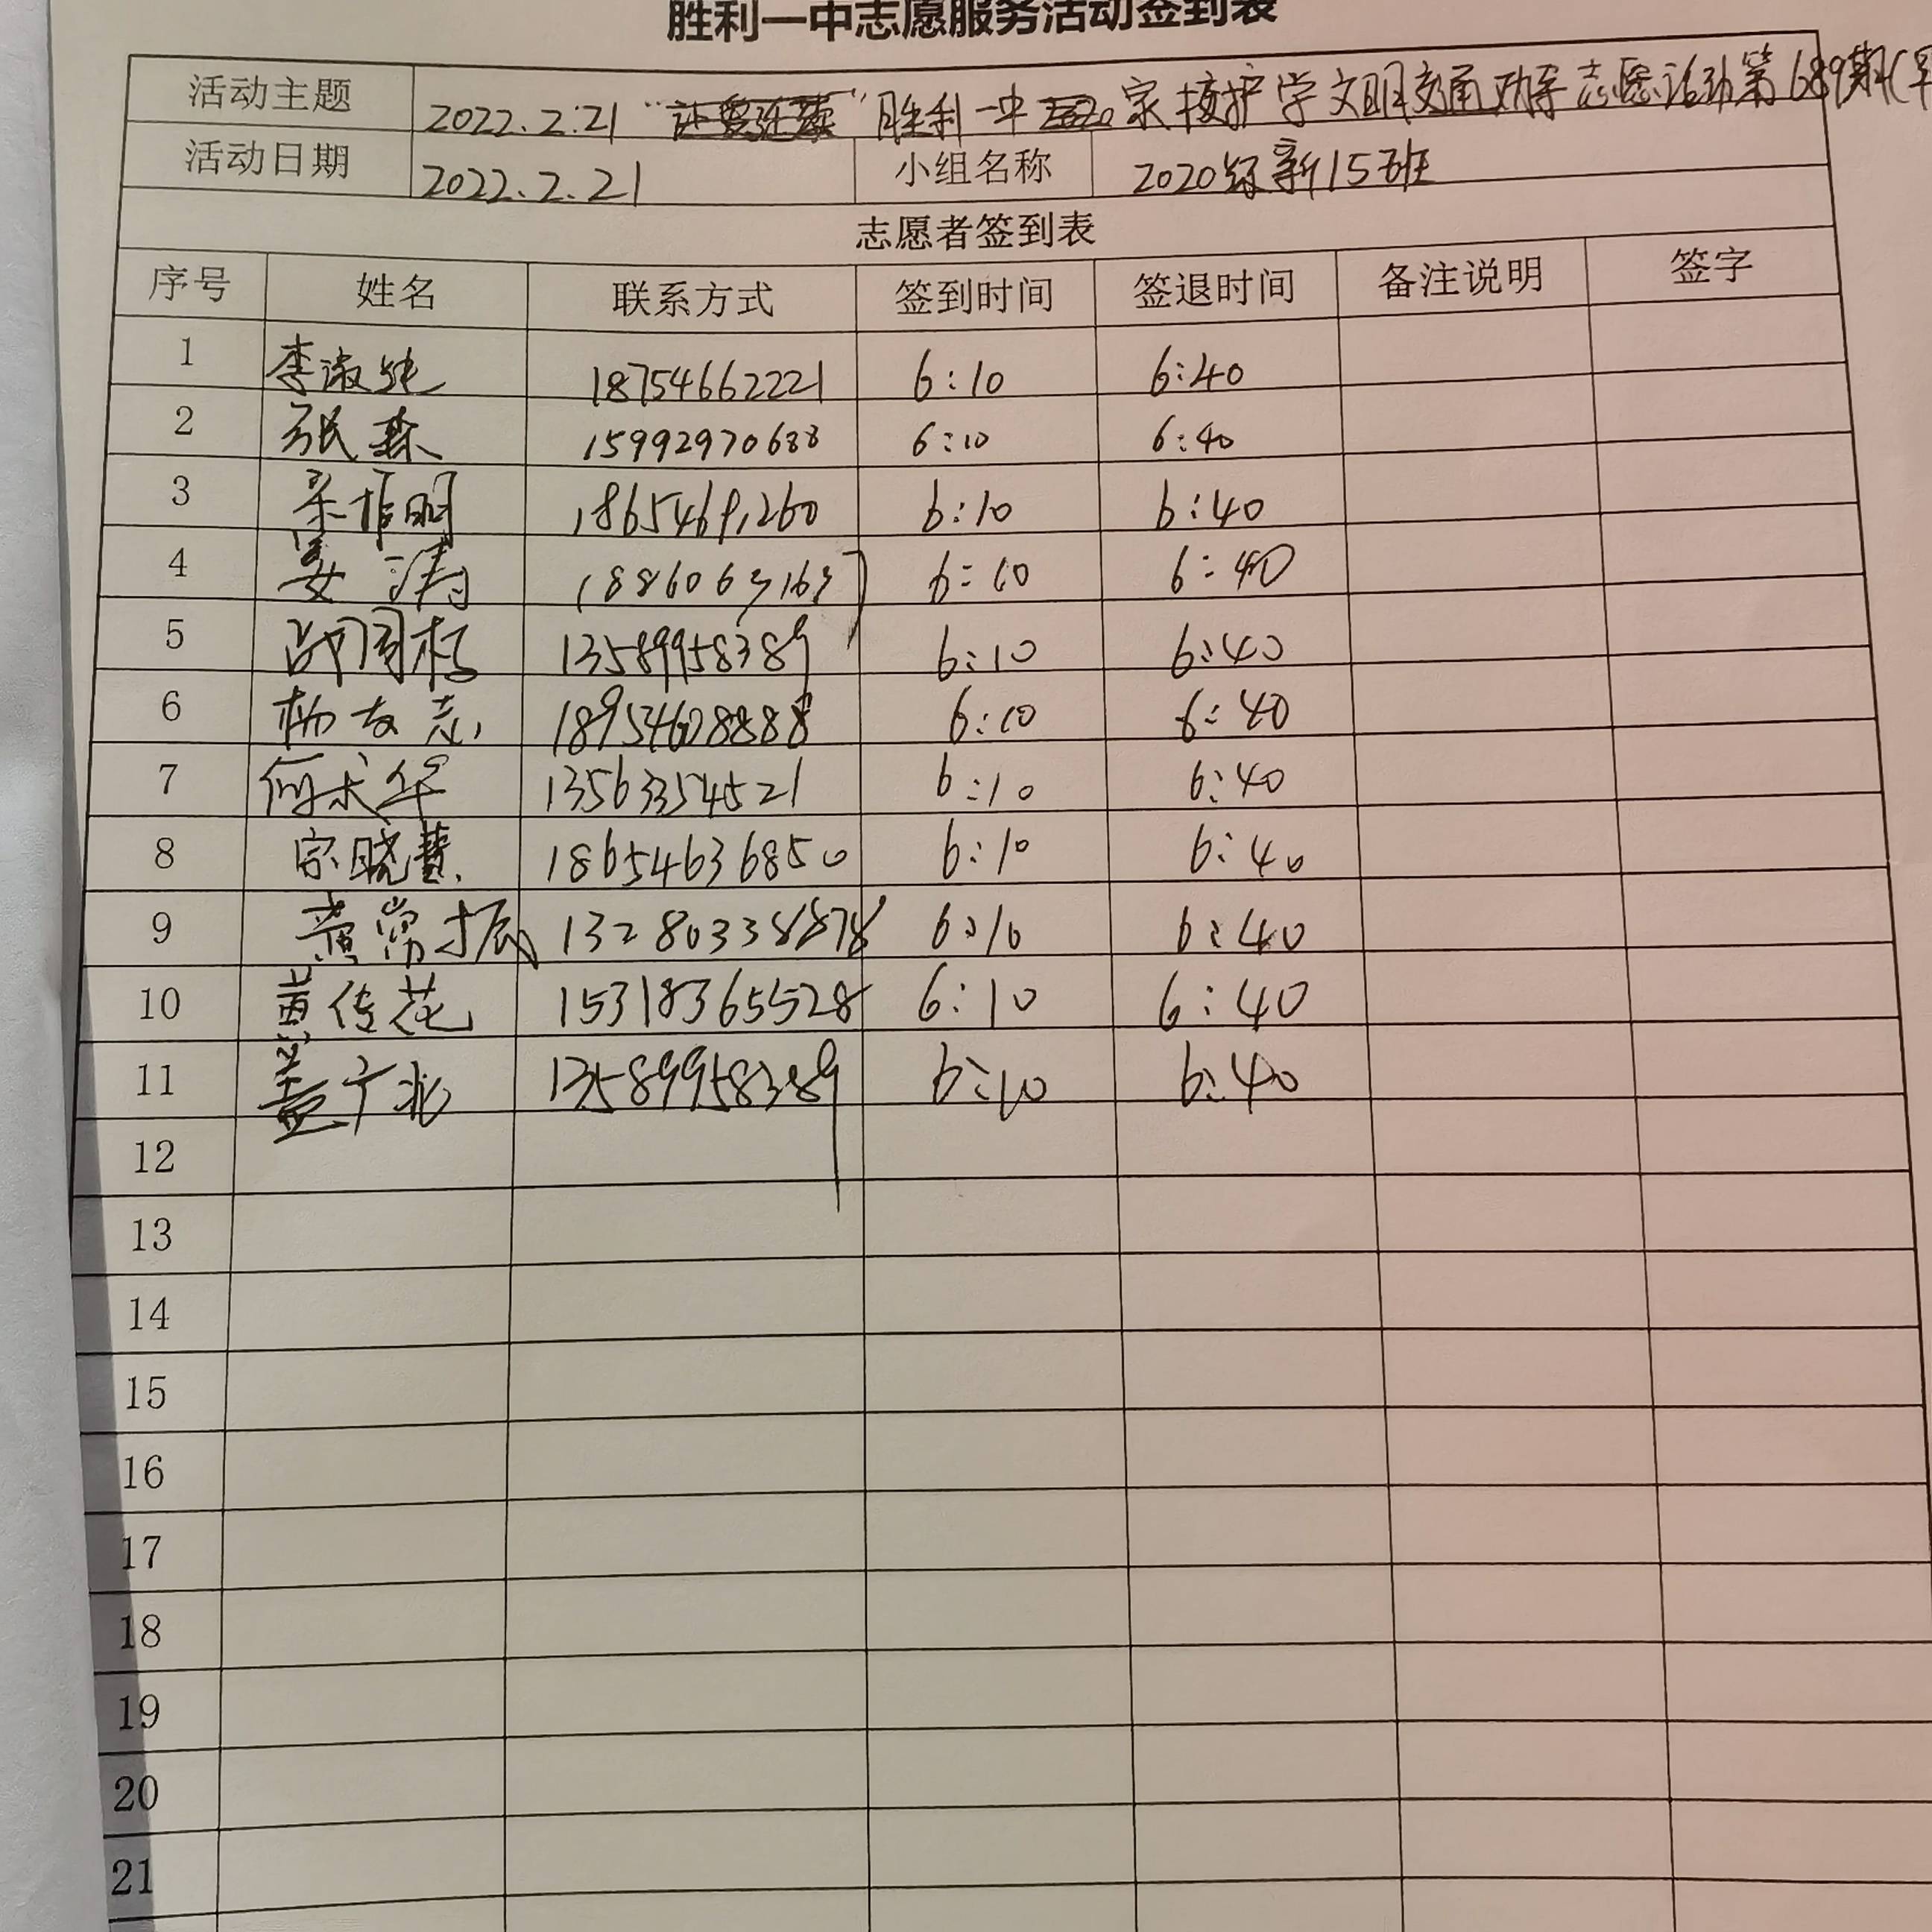 胜利一中志愿服务活动签到表
活动主题 2022.2.21 “让爱延续” 胜利一中 家校护学文明交通劝导志愿活动第689期(早
活动日期 2022.2.21 小组名称 2020级新15班
志愿者签到表
序号 姓名 联系方式 签到时间 签退时间 备注说明 签字
1 李淑纯 18754662221 6:10 6:40
2 张森 15992970688 6:10 6:40
3 明 6:10 6:40
4 姜涛 6:10 6:40
5 13589958389 6:10 6:40
6 杨友志 18954608888 6:10 6:40
7 何术华 13563354521 6:10 6:40
8 宗晓慧 18654636850 6:10 6:40
9 黄常振 13280338878 6:10 6:40
10 黄传花 15318365528 6:10 6:40
11 盖广兆 13589958389 6:10 6:40
12
13
14
15
16
17
18
19
20
21